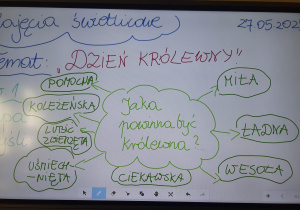 Zajęcia świetlicowe
27.05.202
Temat: "DZIEŃ KRÓLEWNY"
POMOCNA
MIŁA
KOLEŻEŃSKA
Jaka
powinna być
królewna?
LUBIĆ
ZWIERZĘTA
ŁADNA
UŚMIECH-
NIĘTA
CIEKAWSKA
WESOŁA